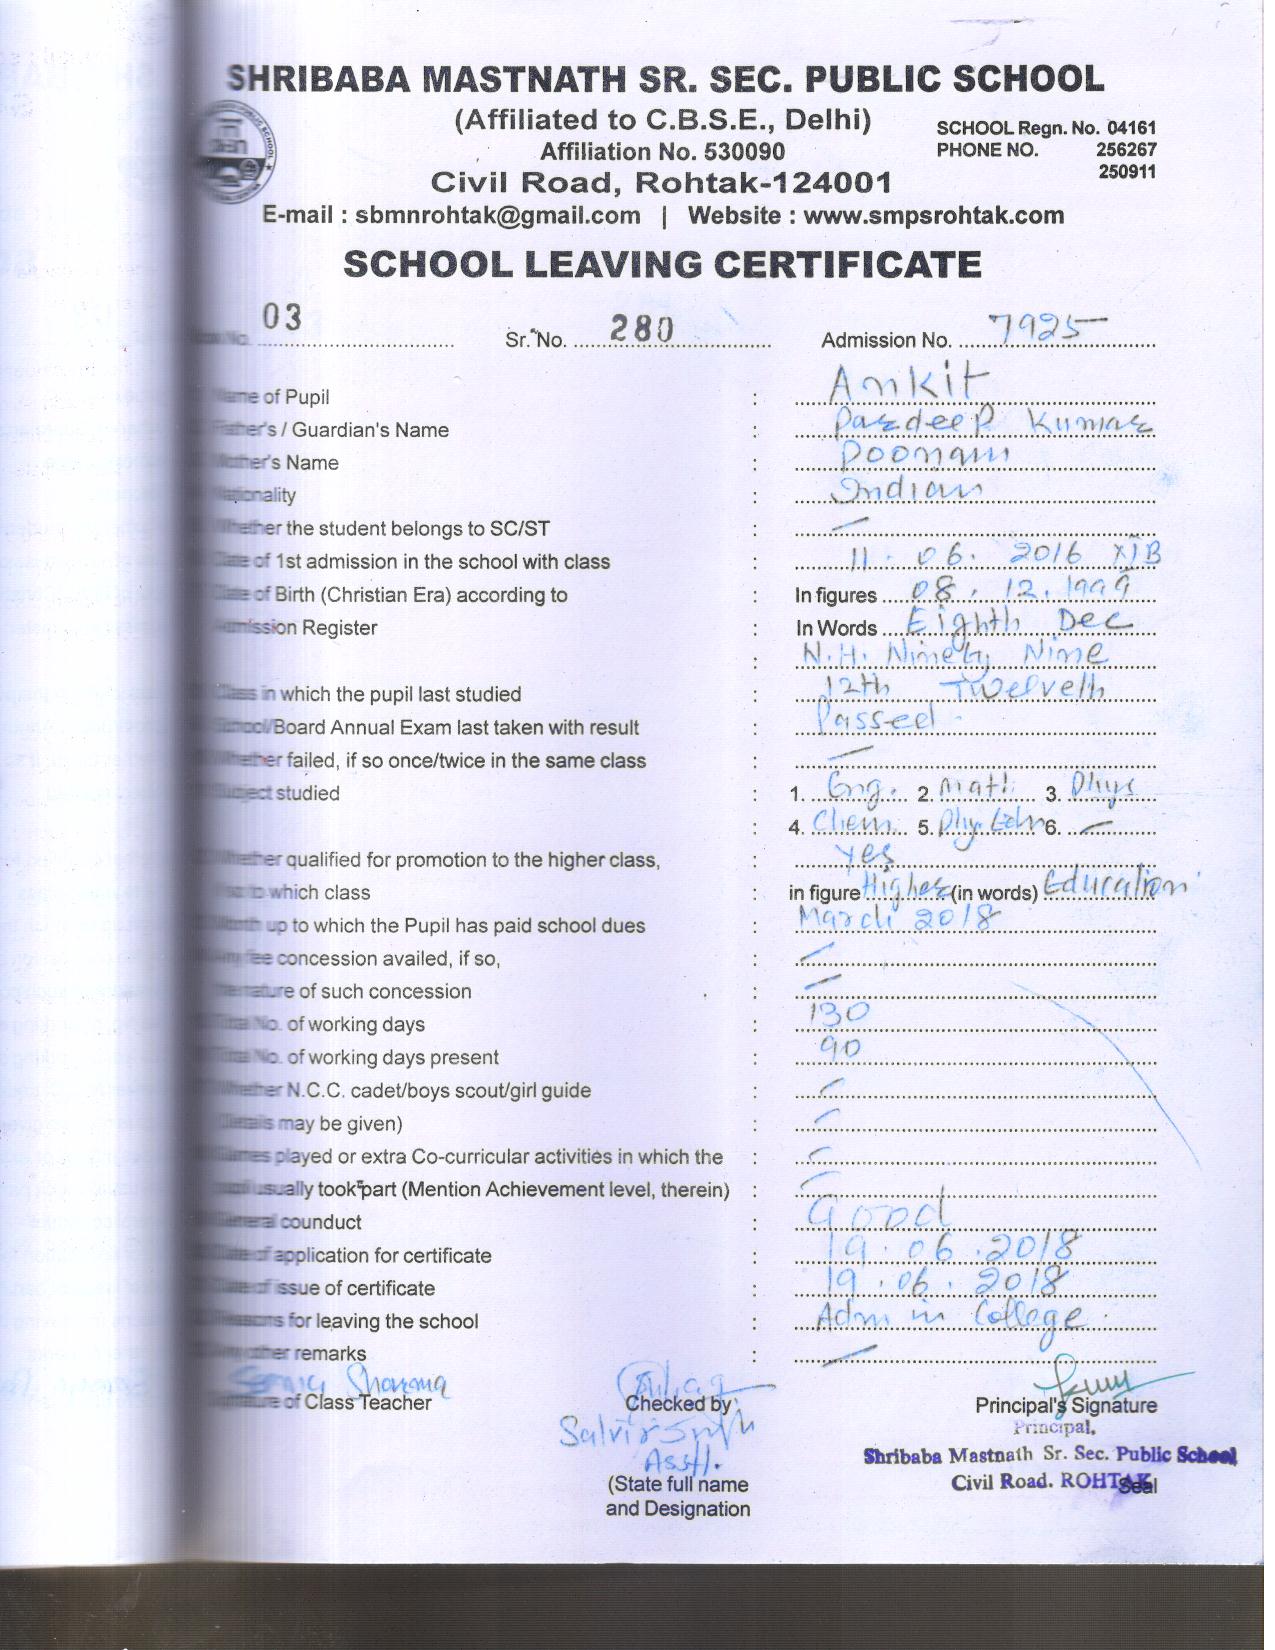 SHRIBABA MASTNATH SR. SEC. PUBLIC SCHOOL
(Affiliated to C.B.S.E., Delhi)
SCHOOL Regn. No. 04161
Affiliation No. 530090
PHONE NO. 256267
250911
Civil Road, Rohtak-124001
E-mail : sbmnrohtak@gmail.com | Website : www.smpsrohtak.com
SCHOOL LEAVING CERTIFICATE
No. 03 Sr. No. 280 Admission No. 7925
Name of Pupil : Ankit
Father's / Guardian's Name : Pardeep Kumar
Mother's Name : Poonam
Nationality : Indian
Whether the student belongs to SC/ST :
Date of 1st admission in the school with class : 11.06.2016 XIB
Date of Birth (Christian Era) according to : In figures 08.12.1999
Admission Register : In Words Eighth Dec
: N.H. Ninety Nine
Class in which the pupil last studied : 12th Twelveth
School/Board Annual Exam last taken with result : Passed
Whether failed, if so once/twice in the same class :
Subject studied : 1. Eng. 2. Math 3. Phys
4. Chem. 5. Phy. Edn 6.
Whether qualified for promotion to the higher class, : Yes
if so to which class : in figure Higher (in words) Education
Month up to which the Pupil has paid school dues : March 2018
Any fee concession availed, if so, :
the nature of such concession :
Total No. of working days : 130
Total No. of working days present : 90
Whether N.C.C. cadet/boys scout/girl guide :
(Details may be given) :
Games played or extra Co-curricular activities in which the :
pupil usually took part (Mention Achievement level, therein) :
General counduct : Good
Date of application for certificate : 19.06.2018
Date of issue of certificate : 19.06.2018
Reasons for leaving the school : Adm in College
Any other remarks :
Sharma
Signature of Class Teacher Checked by Principal's Signature
Principal,
Asstt.
Shribaba Mastnath Sr. Sec. Public School
Civil Road. ROHTAK
Seal
(State full name
and Designation